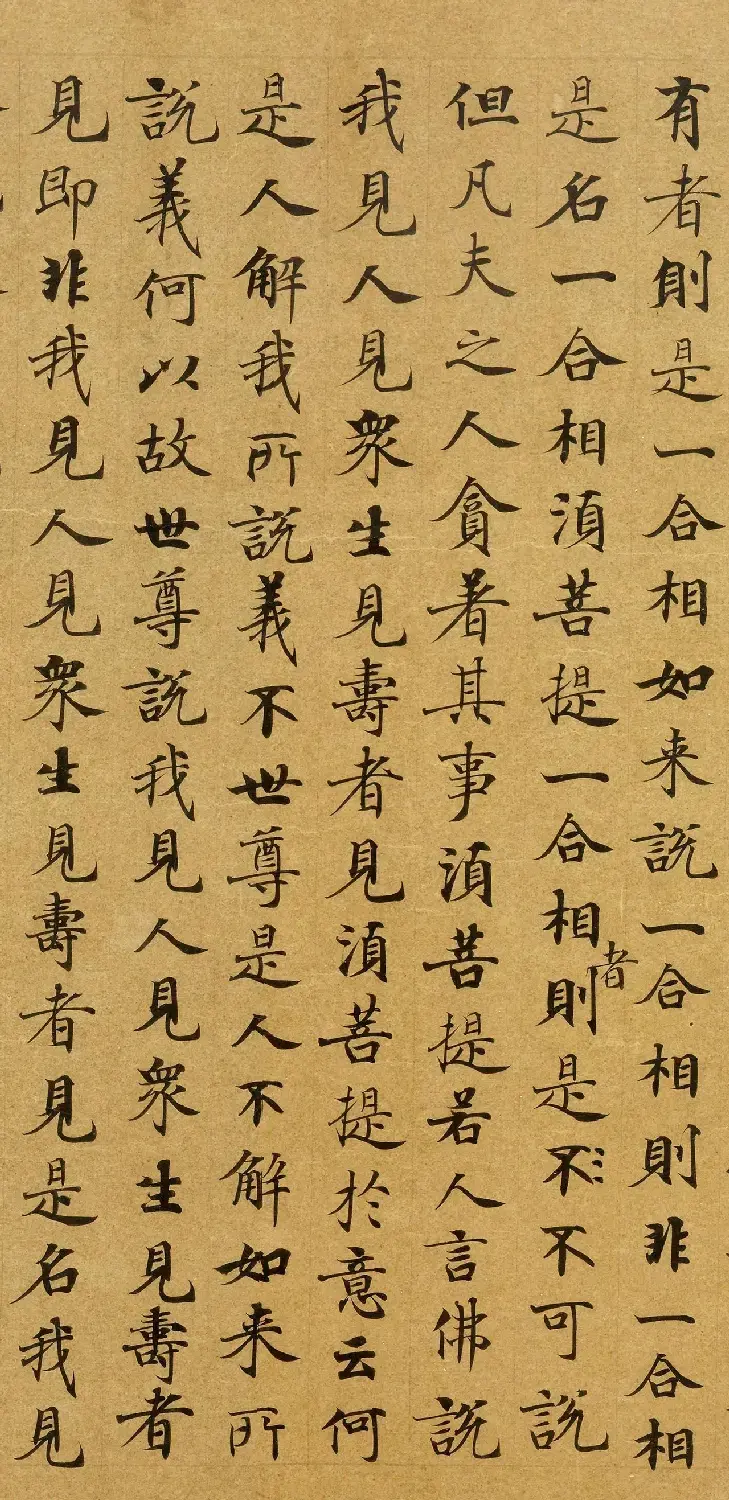 有者則是一合相如来說一合相則非一合相
是名一合相須菩提一合相者則是不不可說
但凡夫之人貪着其事須菩提若人言佛說
我見人見衆生見壽者見須菩提於意云何
是人解我所說義不世尊是人不解如来所
說義何以故世尊說我見人見衆生見壽者
見即非我見人見衆生見壽者見是名我見